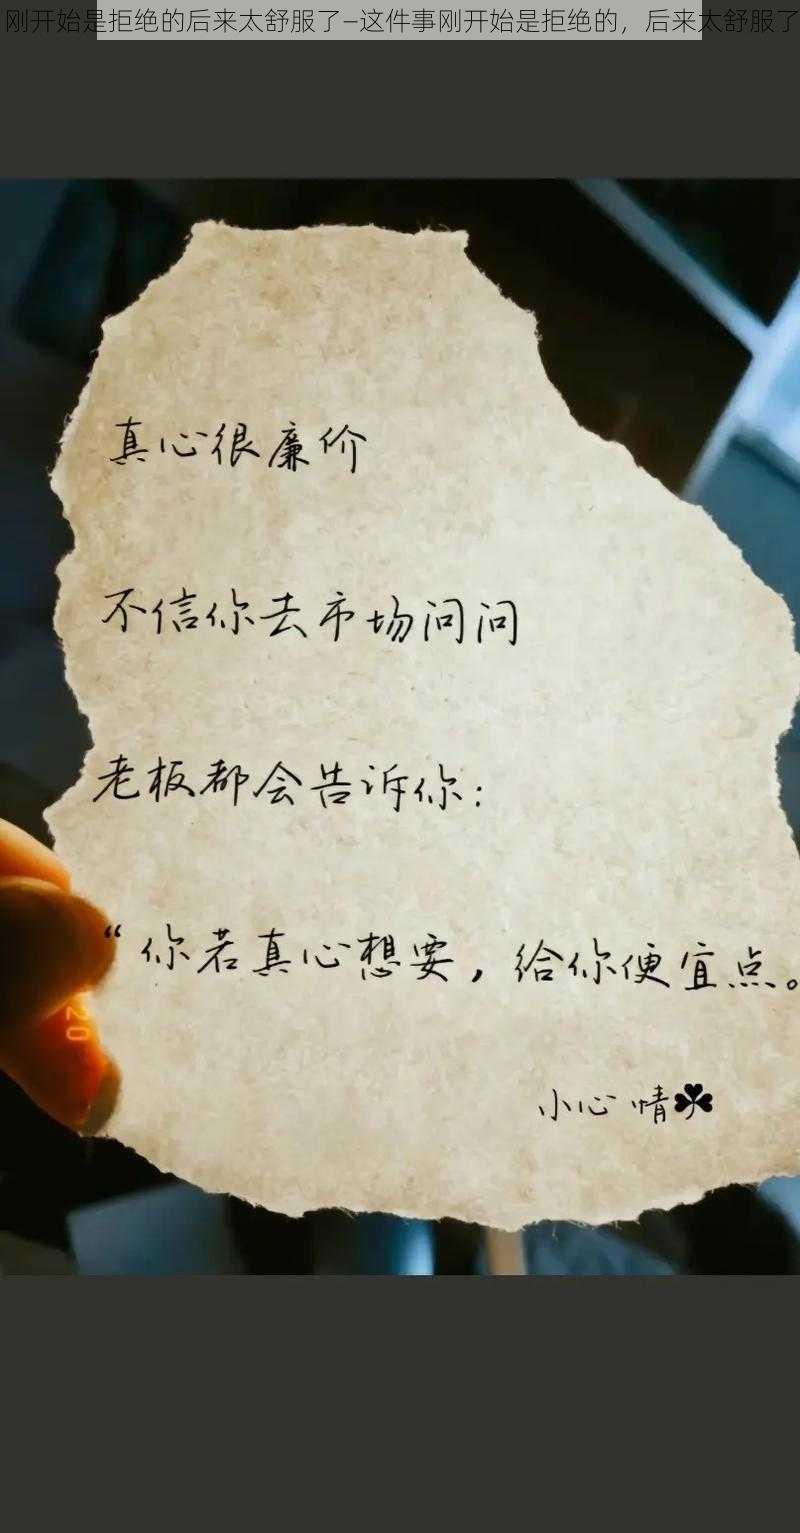 刚开始是拒绝的后来太舒服了–这件事刚开始是拒绝的，后来太舒服了
真心很廉价
不信你去市场问问
老板都会告诉你：
“你若真心想要，给你便宜点。
小心情☘
20